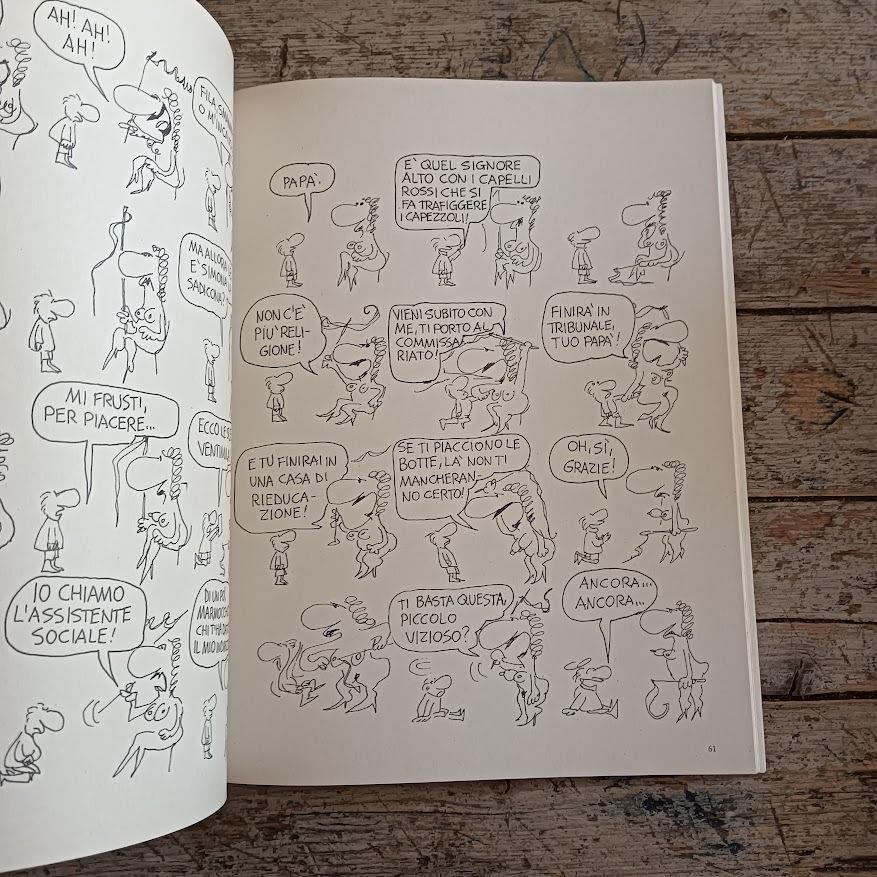 AH! AH!
AH!
MA ALLORA
E' SIMONA
MI FRUSTI,
PER PIACERE...
IO CHIAMO
L'ASSISTENTE
SOCIALE!
PAPÀ.
E' QUEL SIGNORE
ALTO CON I CAPELLI
ROSSI CHE SI
FA TRAFIGGERE
I CAPEZZOLI!
NON C'E'
PIU' RELI-
GIONE!
VIENI SUBITO CON
ME, TI PORTO AL
COMMISSA-
RIATO!
FINIRA' IN
TRIBUNALE,
TUO PAPA'!
E TU FINIRAI IN
UNA CASA DI
RIEDUCA-
ZIONE!
SE TI PIACCIONO LE
BOTTE, LA' NON TI
MANCHERAN-
NO CERTO!
OH, SÌ,
GRAZIE!
TI BASTA QUESTA,
PICCOLO
VIZIOSO?
ANCORA...
ANCORA...
61